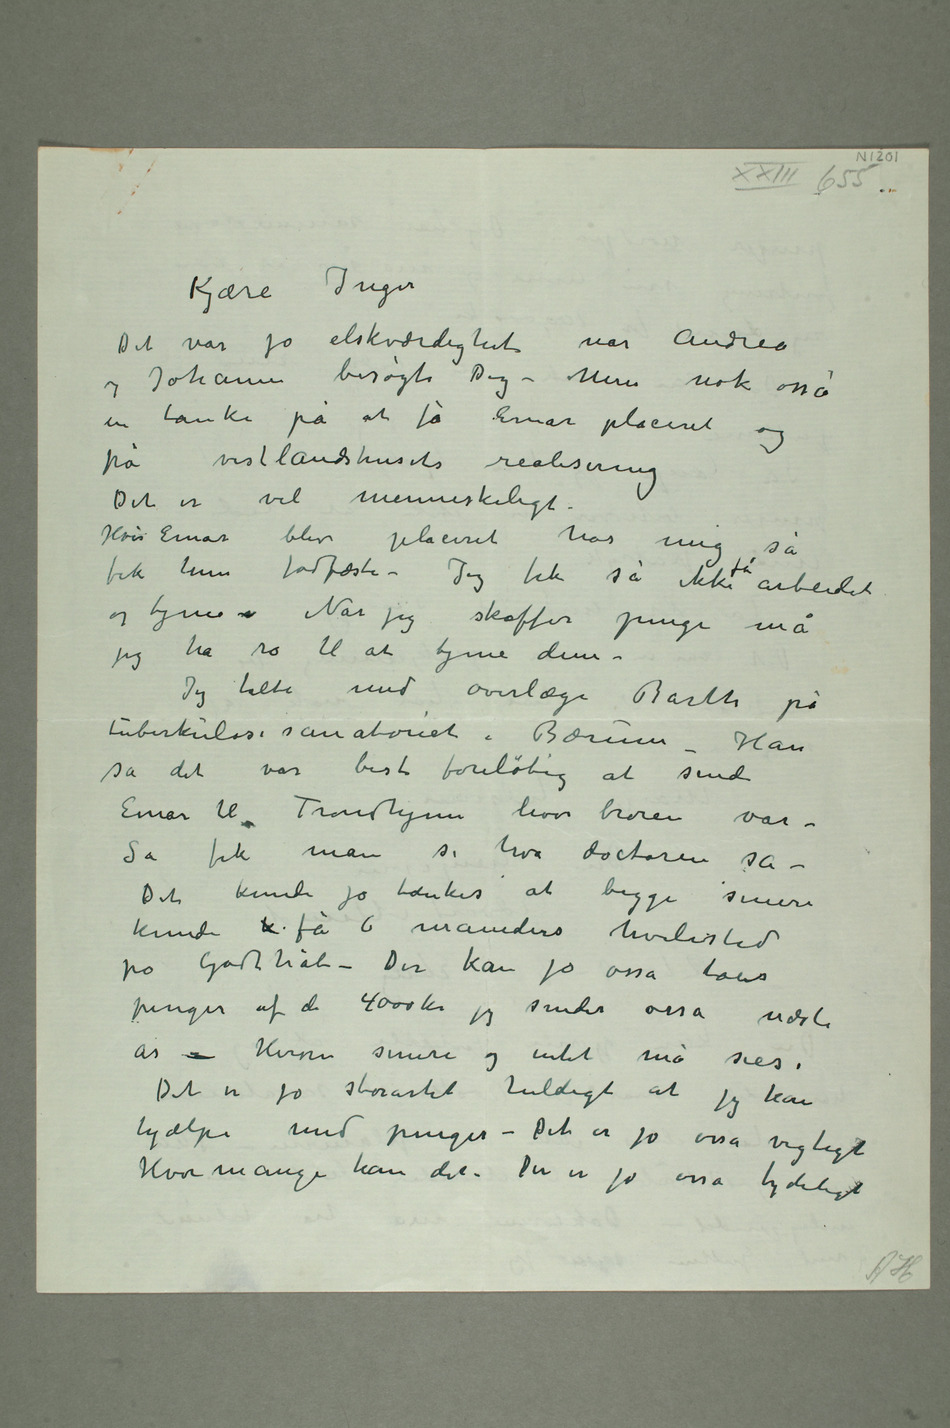 N1201
XXIII 655
Kjære Inger
Det var jo elskværdighet når Andrea
og Johanne besøgte Dig – Men nok osså
en tanke på at få Einar placeret og
på vestlandshusets realisering
Det er vel menneskeligt.
Hvis Einar blev placeret hos mig så
fik hun fodfæste – Jeg fik så ikke få arbeidet
og tjene – Når jeg skaffer penge må
jeg ha ro til at tjene dem –
Jeg talte med overlæge Barth på
tuberkulosesanatoriet i Bærum – Han
sa det var best foreløbig at sende
Einar til Trondhjem hvor broren var –
Så fik man se hva doctoren sa –
Det kunde jo tænkes at begge senere
kunde få 6 måneders hvilested
på Godthåb – Der kan jo osså taes
penger af de 4000 kr jeg sender osså næste
år – Herom senere og intet må sies.
Det er jo storartet heldigt at jeg kan
hjælpe med penger – Det er jo osså vigtigt
Hvor mange kan det – Der er jo osså tydeligt
AH